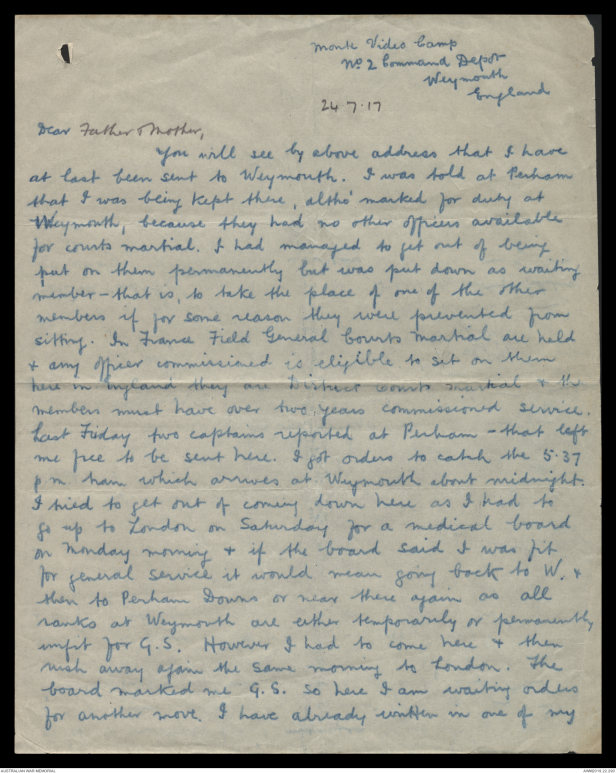 Monte Video Camp
No 2 Command Depot
Weymouth
England
24.7.17
Dear Father & Mother,
You will see by above address that I have
at last been sent to Weymouth. I was told at Perham
that I was being kept there, altho' marked for duty at
Weymouth, because they had no other officers available
for courts martial. I had managed to get out of being
put on them permanently but was put down as waiting
member – that is, to take the place of one of the other
members if for some reason they were prevented from
sitting. In France Field General Courts Martial are held
& any officer commissioned is eligible to sit on them
here in England they are District Courts Martial & the
members must have over two years commissioned service.
Last Friday two captains reported at Perham – that left
me free to be sent here. I got orders to catch the 5.37
p m train which arrives at Weymouth about midnight.
I tried to get out of coming down here as I had to
go up to London on Saturday for a medical board
on Monday morning & if the board said I was fit
for general service it would mean going back to W. &
then to Perham Downs or near there again as all
ranks at Weymouth are either temporarily or permanently
unfit for G.S. However I had to come here & then
rush away again the same morning to London. The
board marked me G.S. so here I am waiting orders
for another move. I have already written in one of my
AUSTRALIAN WAR MEMORIAL